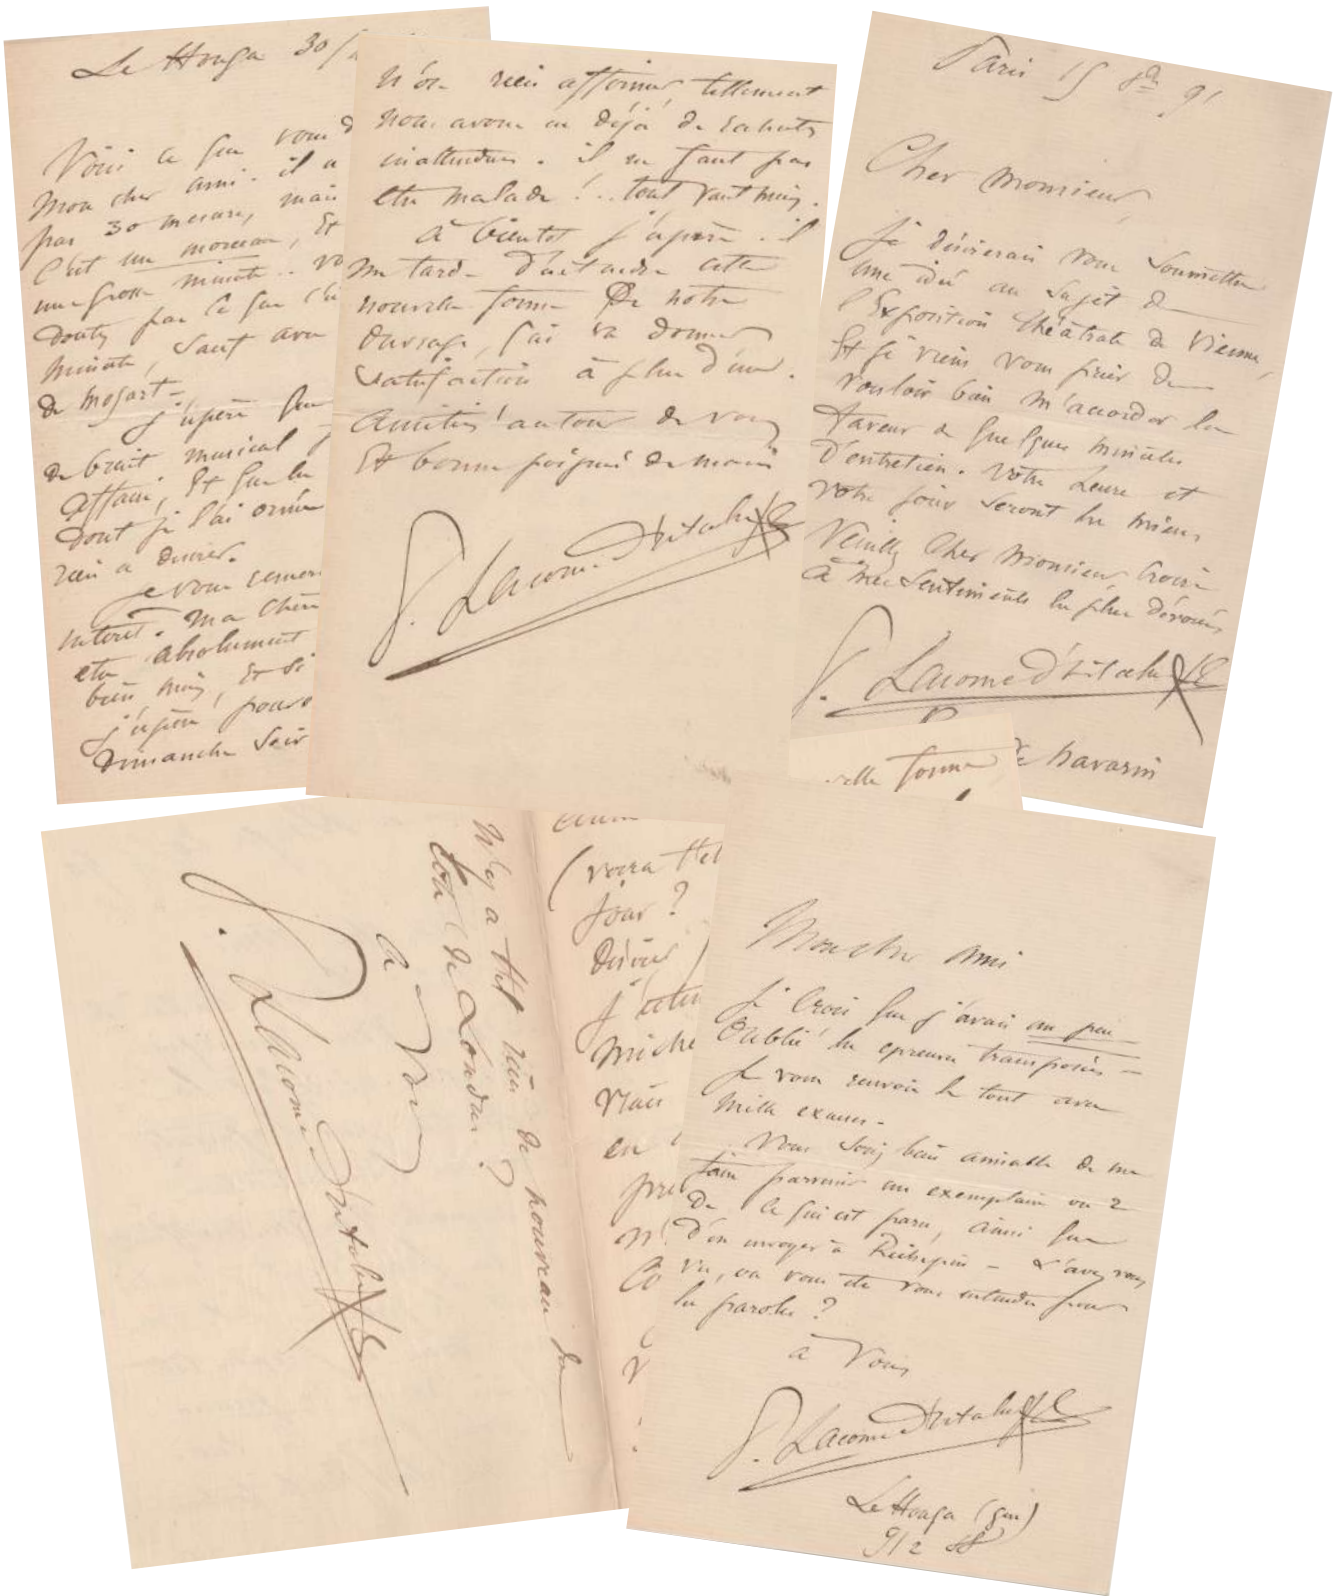 Le Houga 30/
Voici ce que vous d
mon cher ami. il n
pas 30 mesures, mais
C'est un morceau, Et
une grosse minute.. vo
doutez pas ce que c'e
minute, sauf avec
de Mozart -
J'espère que
de bruit musical
affaire, Et que la
dont je l'ai ornée
rien a désirer.
Je vous remer
interet. Ma chère
être absolument
bien mieux, Et si
j'espère, pourr
Dimanche Soir
n'ose rien affirmer tellement
nous avons eu déjà de
inattendues. il ne faut pas
etre malade!.. tout vaut mieux.
à bientot j'espère. il
me tarde d'entendre cette
nouvelle forme de notre
ouvrage, qui va donner
satisfaction à plus d'un.
Amitiés autour de vous
Et bonne poignée de main
P. Lacome d'Estalenx
Paris 15 8bre 91
Cher monsieur
Je désirerais vous soumettre
une idée au sujet de
l'Exposition théâtrale de Vienne,
Et je viens vous prier de
vouloir bien m'accorder la
faveur de quelques minutes
d'entretien. Votre heure et
votre jour seront les miens
Veuillez Cher Monsieur croire
à mes sentiments les plus dévoués
P. Lacome d'Estalenx
de navarin
elle forme
N'y a t'il rien de nouveau du
côté de Londres?
à vous
P. Lacome d'Estalenx
(verra t'el
jour?
désirer)
j'atten
miche
Mais
en
pre
Mon cher ami
Je crois que j'avais un peu
oublié les epreuves transposées -
Je vous renvoie le tout avec
mille excuses -
Vous seriez bien aimable de me
faire parvenir un exemplaire ou 2
de ce qui est paru, ainsi que
d'en envoyer à Richepin - L'avez vous
vu, ou vous etes vous entendus pour
les paroles?
à Vous
P. Lacome d'Estalenx
Le Houga (gers)
9/2 88